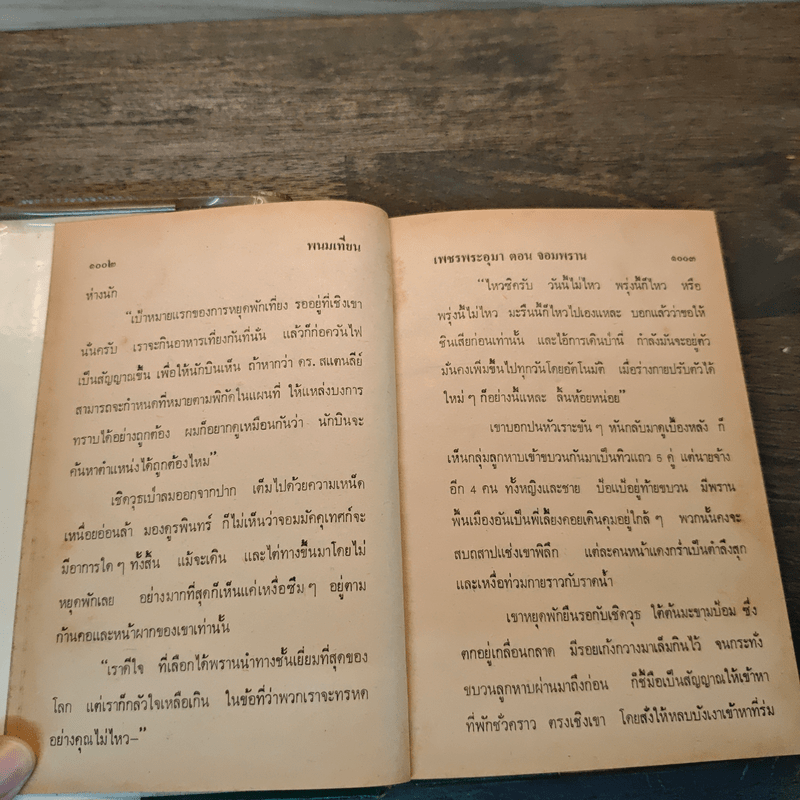 ๑๐๐๒
พนมเทียน
ห่างนัก
"เป้าหมายแรกของการหยุดพักเที่ยง รออยู่ที่เชิงเขา
นั่นครับ เราจะกินอาหารเที่ยงกันที่นั่น แล้วก็ก่อควันไฟ
เป็นสัญญาณขึ้น เพื่อให้นักบินเห็น ถ้าหากว่า ดร. สแตนลีย์
สามารถจะกำหนดที่หมายตามพิกัดในแผนที่ ให้แหล่งบงการ
ทราบได้อย่างถูกต้อง ผมก็อยากดูเหมือนกันว่า นักบินจะ
ค้นหาตำแหน่งได้ถูกต้องไหม"
เชิดวุธเป่าลมออกจากปาก เต็มไปด้วยความเหน็ด
เหนื่อยอ่อนล้า มองดูรพินทร์ ก็ไม่เห็นว่าจอมมัคคุเทศก์จะ
มีอาการใด ๆ ทั้งสิ้น แม้จะเดิน และไต่ทางขึ้นมาโดยไม่
หยุดพักเลย อย่างมากที่สุดก็เห็นแค่เหงื่อซึม ๆ อยู่ตาม
ก้านคอและหน้าผากของเขาเท่านั้น
"เราดีใจ ที่เลือกได้พรานนำทางชั้นเยี่ยมที่สุดของ
โลก แต่เราก็กลัวใจเหลือเกิน ในข้อที่ว่าพวกเราจะทรหด
อย่างคุณไม่ไหว–"
เพชรพระอุมา ตอน จอมพราน
๑๐๐๓
"ไหวซิครับ วันนี้ไม่ไหว พรุ่งนี้ก็ไหว หรือ
พรุ่งนี้ไม่ไหว มะรืนนี้ก็ไหวไปเองแหละ บอกแล้วว่าขอให้
ชินเสียก่อนเท่านั้น และไอ้การเดินป่านี่ กำลังมันจะอยู่ตัว
มั่นคงเพิ่มขึ้นไปทุกวันโดยอัตโนมัติ เมื่อร่างกายปรับตัวได้
ใหม่ ๆ ก็อย่างนี้แหละ ลิ้นห้อยหน่อย"
เขาบอกปนหัวเราะขัน ๆ หันกลับมาดูเบื้องหลัง ก็
เห็นกลุ่มลูกหาบเข้าขบวนกันมาเป็นทิวแถว 5 คู่ แต่นายจ้าง
อีก 4 คน ทั้งหญิงและชาย ป้อแป้อยู่ท้ายขบวน มีพราน
พื้นเมืองอันเป็นพี่เลี้ยงคอยเดินคุมอยู่ใกล้ ๆ พวกนั้นคงจะ
สบถสาปแช่งเขาพิลึก แต่ละคนหน้าแดงก่ำเป็นตำลึงสุก
และเหงื่อท่วมกายราวกับราดน้ำ
เขาหยุดพักยืนรอกับเชิดวุธ ใต้ต้นมะขามป้อม ซึ่ง
ตกอยู่เกลื่อนกลาด มีรอยเก้งกวางมาเล็มกินไว้ จนกระทั่ง
ขบวนลูกหาบผ่านมาถึงก่อน ก็ชี้มือเป็นสัญญาณให้เข้าหา
ที่พักชั่วคราว ตรงเชิงเขา โดยสั่งให้หลบบังเงาเข้าหาที่ร่ม